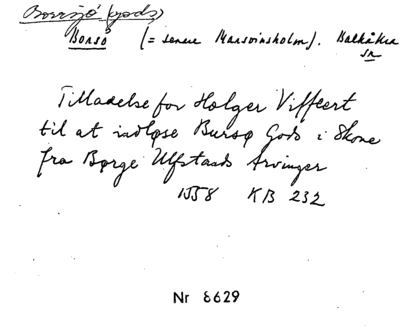 Borrsjö (gods)
Borsø (= senere Marsvinsholm). Balkåkra
sn
Tilladelse for Holger Viffert
til at indløse Bursø Gods i Skone
fra Børge Ulfstads Arvinger
1558 KB 232
Nr 8629